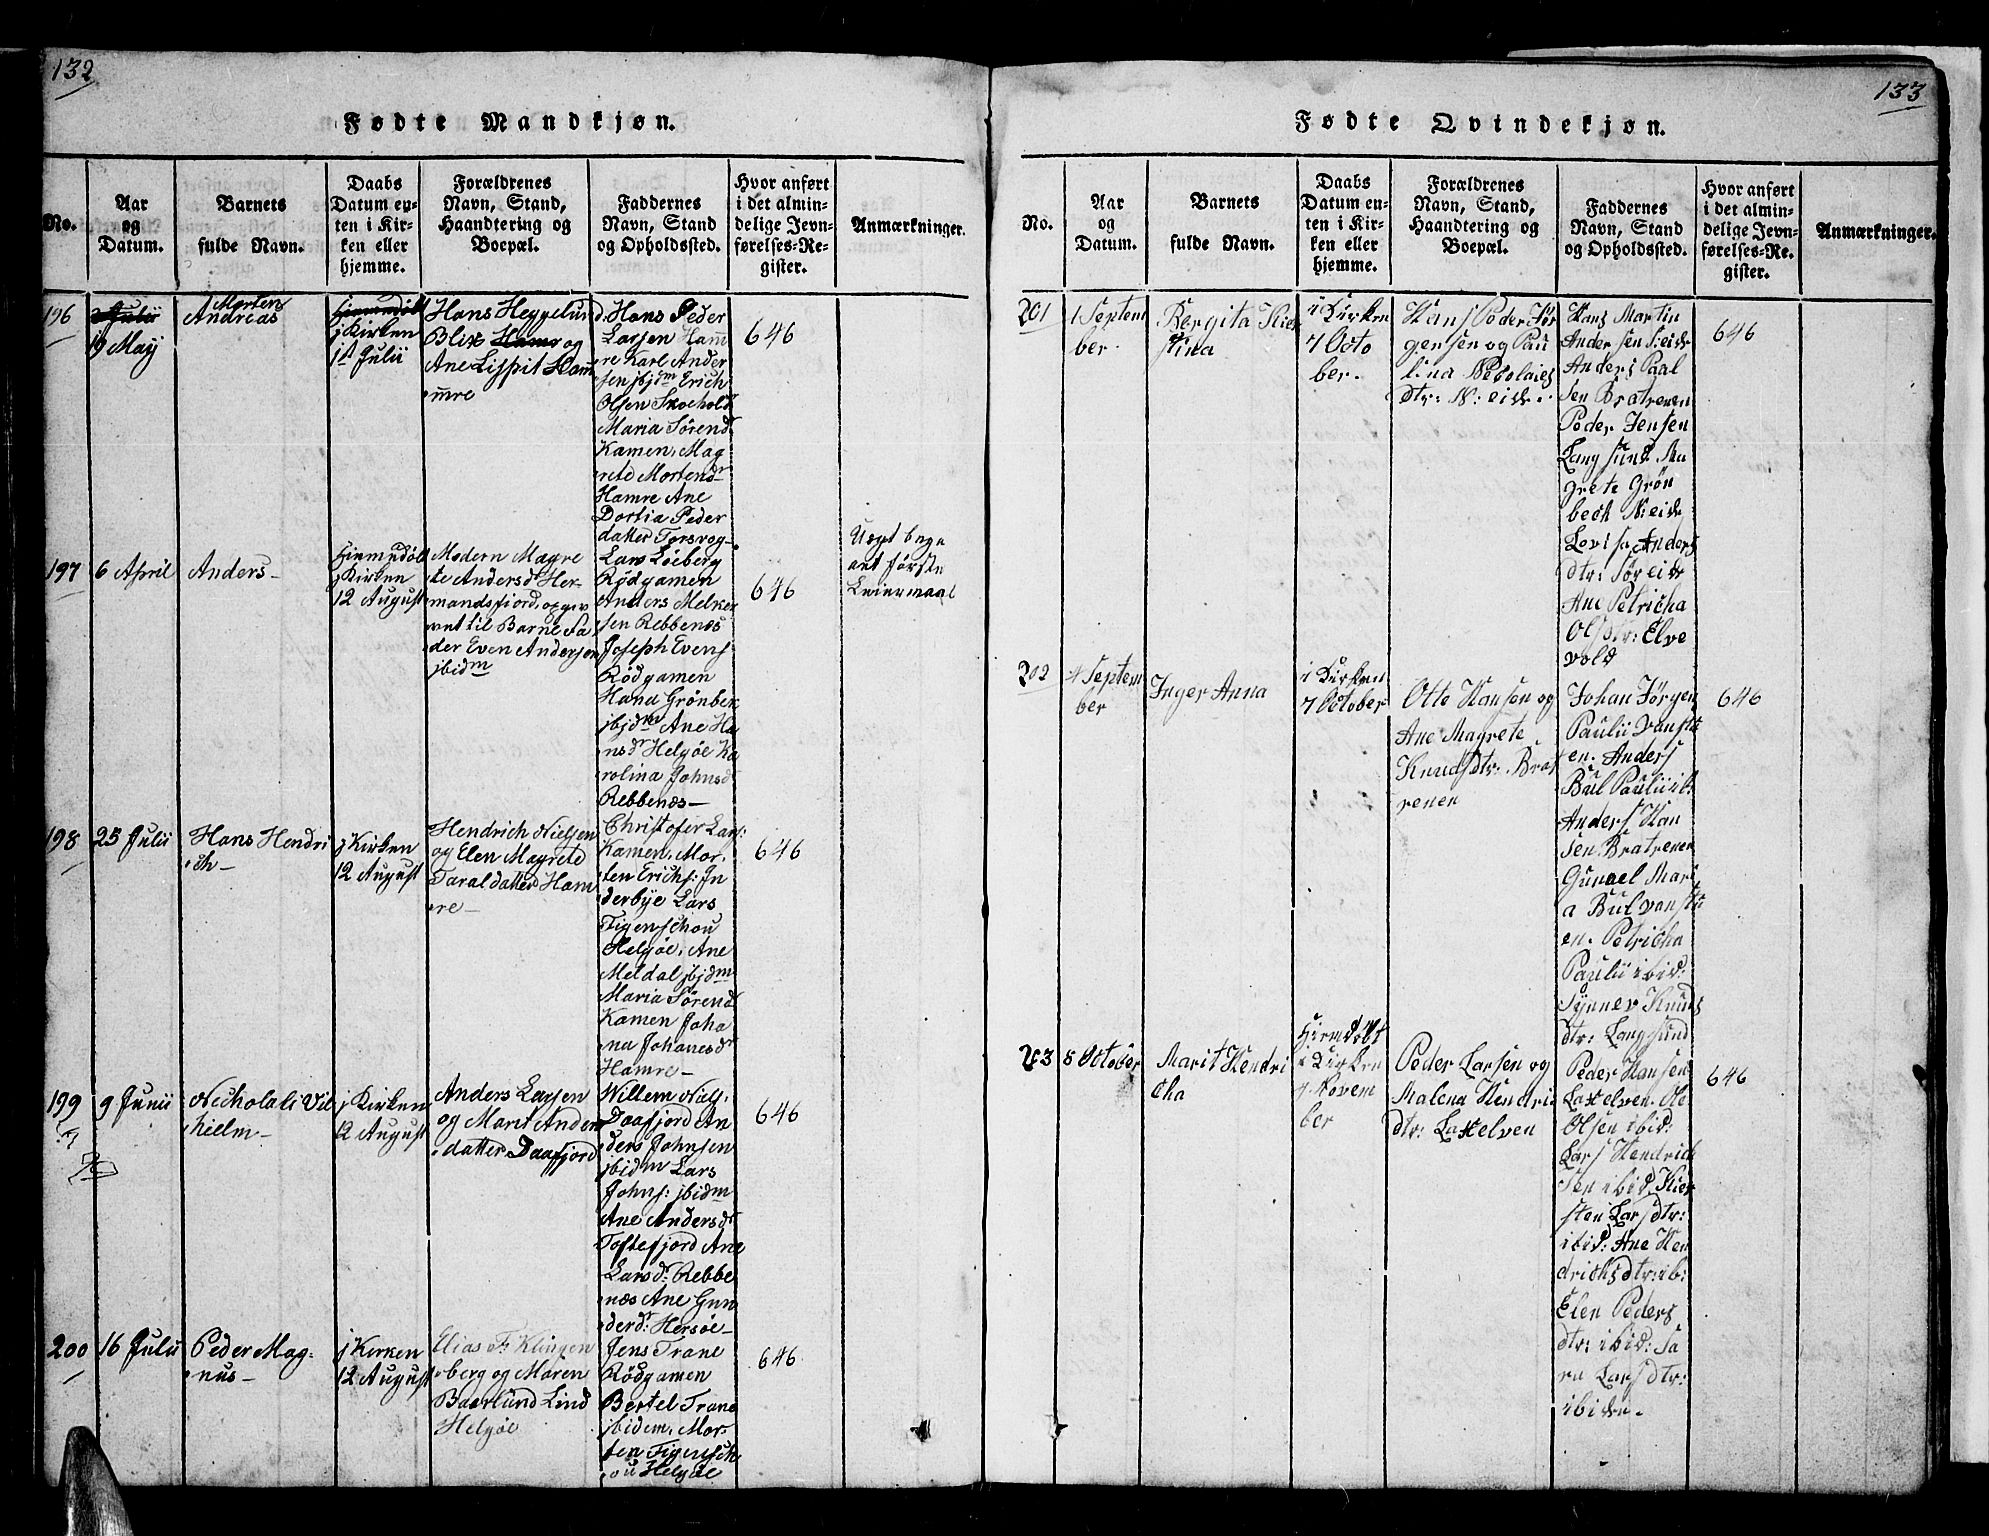 132
Fødte Mandkjøn.
No.
Aar
og
Datum.
Barnets
fulde Navn.
Daabs
Datum en-
ten i Kir-
ken eller
hjemme.
Forældrenes
Navn, Stand,
Haandtering og
Boepæl.
Faddernes
Navn, Stand
og Opholdssted.
Hvor anført
i det almin-
delige Jevn-
førelses-Re-
gister.
Anmærkninger.
196
19 May
Morten
Andreas
hiemmedöbt
j Kirken
1st Julii
Hans Heggelund
Blix Hamr og
Ane Lispit Ham
mre
Hans Peder
Larsen Ham
re Karl Ander
sen jbjdm Erich
Olsen Skoghold
Maria Sörend
Kamen, Mag
rete Mortend
Hamre Ane
Dortia Peder
datter Torsvog
646
197
6 April
Anders
hiemmedöbt
j Kirken
12 August
Modern Magre
te Andersdr Her
mandsfjord, opgiv
ent til Barne Fa
der Even Andersen
jbidm
Lars Löeberg
Rödgamen
Anders Melker
sen Rebbenæs
Joseph Evens
Rödgamen
Hana Grönbek
jbjdm Ane Ha
nsdr Helgöe Ka
rolina Johnsd
Rebbenæs
646
Uægt begge
æt förste
Leiermaal
198
25 Julii
Hans Hendri
ch
j Kirken
12 August
Hendrich Nielsen
og Elen Magrete
Taraldatter Ham
re
Christofer Lars:
Kamen, Mor
ten Erichs: In
derbye Lars
Figenschou
Helgöe, Ane
Meldal jbjdm
Maria Sörend
Kamen Joha
na Johanesd
Hamre
646
199
9 Junii
Nicholali Vil
hielm
j Kirken
12 August
Anders Larsen
og Marit Anders
datter Daafjord
Willem Niels:
Daafjord An
ders Johnsen
jbidm Lars
Johns: jbidm
Ane Andersd
Toftefjord Ane
Larsd: Rebbe
næs Ane Gun
derd: Hersöe
646
200
16 Julii
Peder Mag
nus
j Kirken
12 August
Elias F: Klingen
berg og Maren
Baarlund Lind
Helgöe
Jens Trane
Rödgamen
Bertel Trane
jbidem, Mor
ten Figensch
ou Helgöe
646
133
Fødte Qvindekjøn.
No.
Aar
og
Datum.
Barnets
fulde Navn.
Daabs
Datum en-
ten i Kir-
ken eller
hjemme.
Forældrenes
Navn, Stand,
Haandtering og
Boepæl.
Faddernes
Navn, Stand
og Opholdssted.
Hvor anført
i det almin-
delige Jevn-
førelses-Re-
gister.
Anmærkninger.
201
1 Septem
ber
Bergita Kier
stina
i Kirken
7 Octo
ber.
Hans Peder Jör
gensen og Pau
lina Nicolaies
dtr: N:eide.
Hans Martin
Andersen Neide
Anders Paal
sen Bratrenen
Peder Jensen
Lang sund Ma
grete Grön
bech N:eide
Lovisa Anders
dtr: Söreide
Ane Petricha
Ols dtr: Elve
vold
646
202
4 Septem
ber
Inger Anna
i Kirken
7 October
Otte Hansen og
Ane Magrete
Knudsdtr: Brat
renen
Johan Jörgen
Paulii Vanstu
en. Anders
Bul Paulii ib:
Anders Han
sen Bratrenen
Gunael Mari
a Bul vanstu
en. Petricha
Paulii ibid:
Synnev Knuds
dtr: Langsund
646
203
8 October
Marit Hendri
cha
Hjemdöbt
i Kirken
4 Novem
ber
Peder Larsen og
Malena Hendric
dtr: Laxelven
Peder Hansen
Laxelven. Ole
Olsen ibid:
Lars Hendrich
sen ibid. Kier
sten Larsdtr:
ibid: Ane Hen
drichsdtr: ib:
Elen Peders
dtr: ibid: Sa
ra Larsdtr:
ibidm.
646